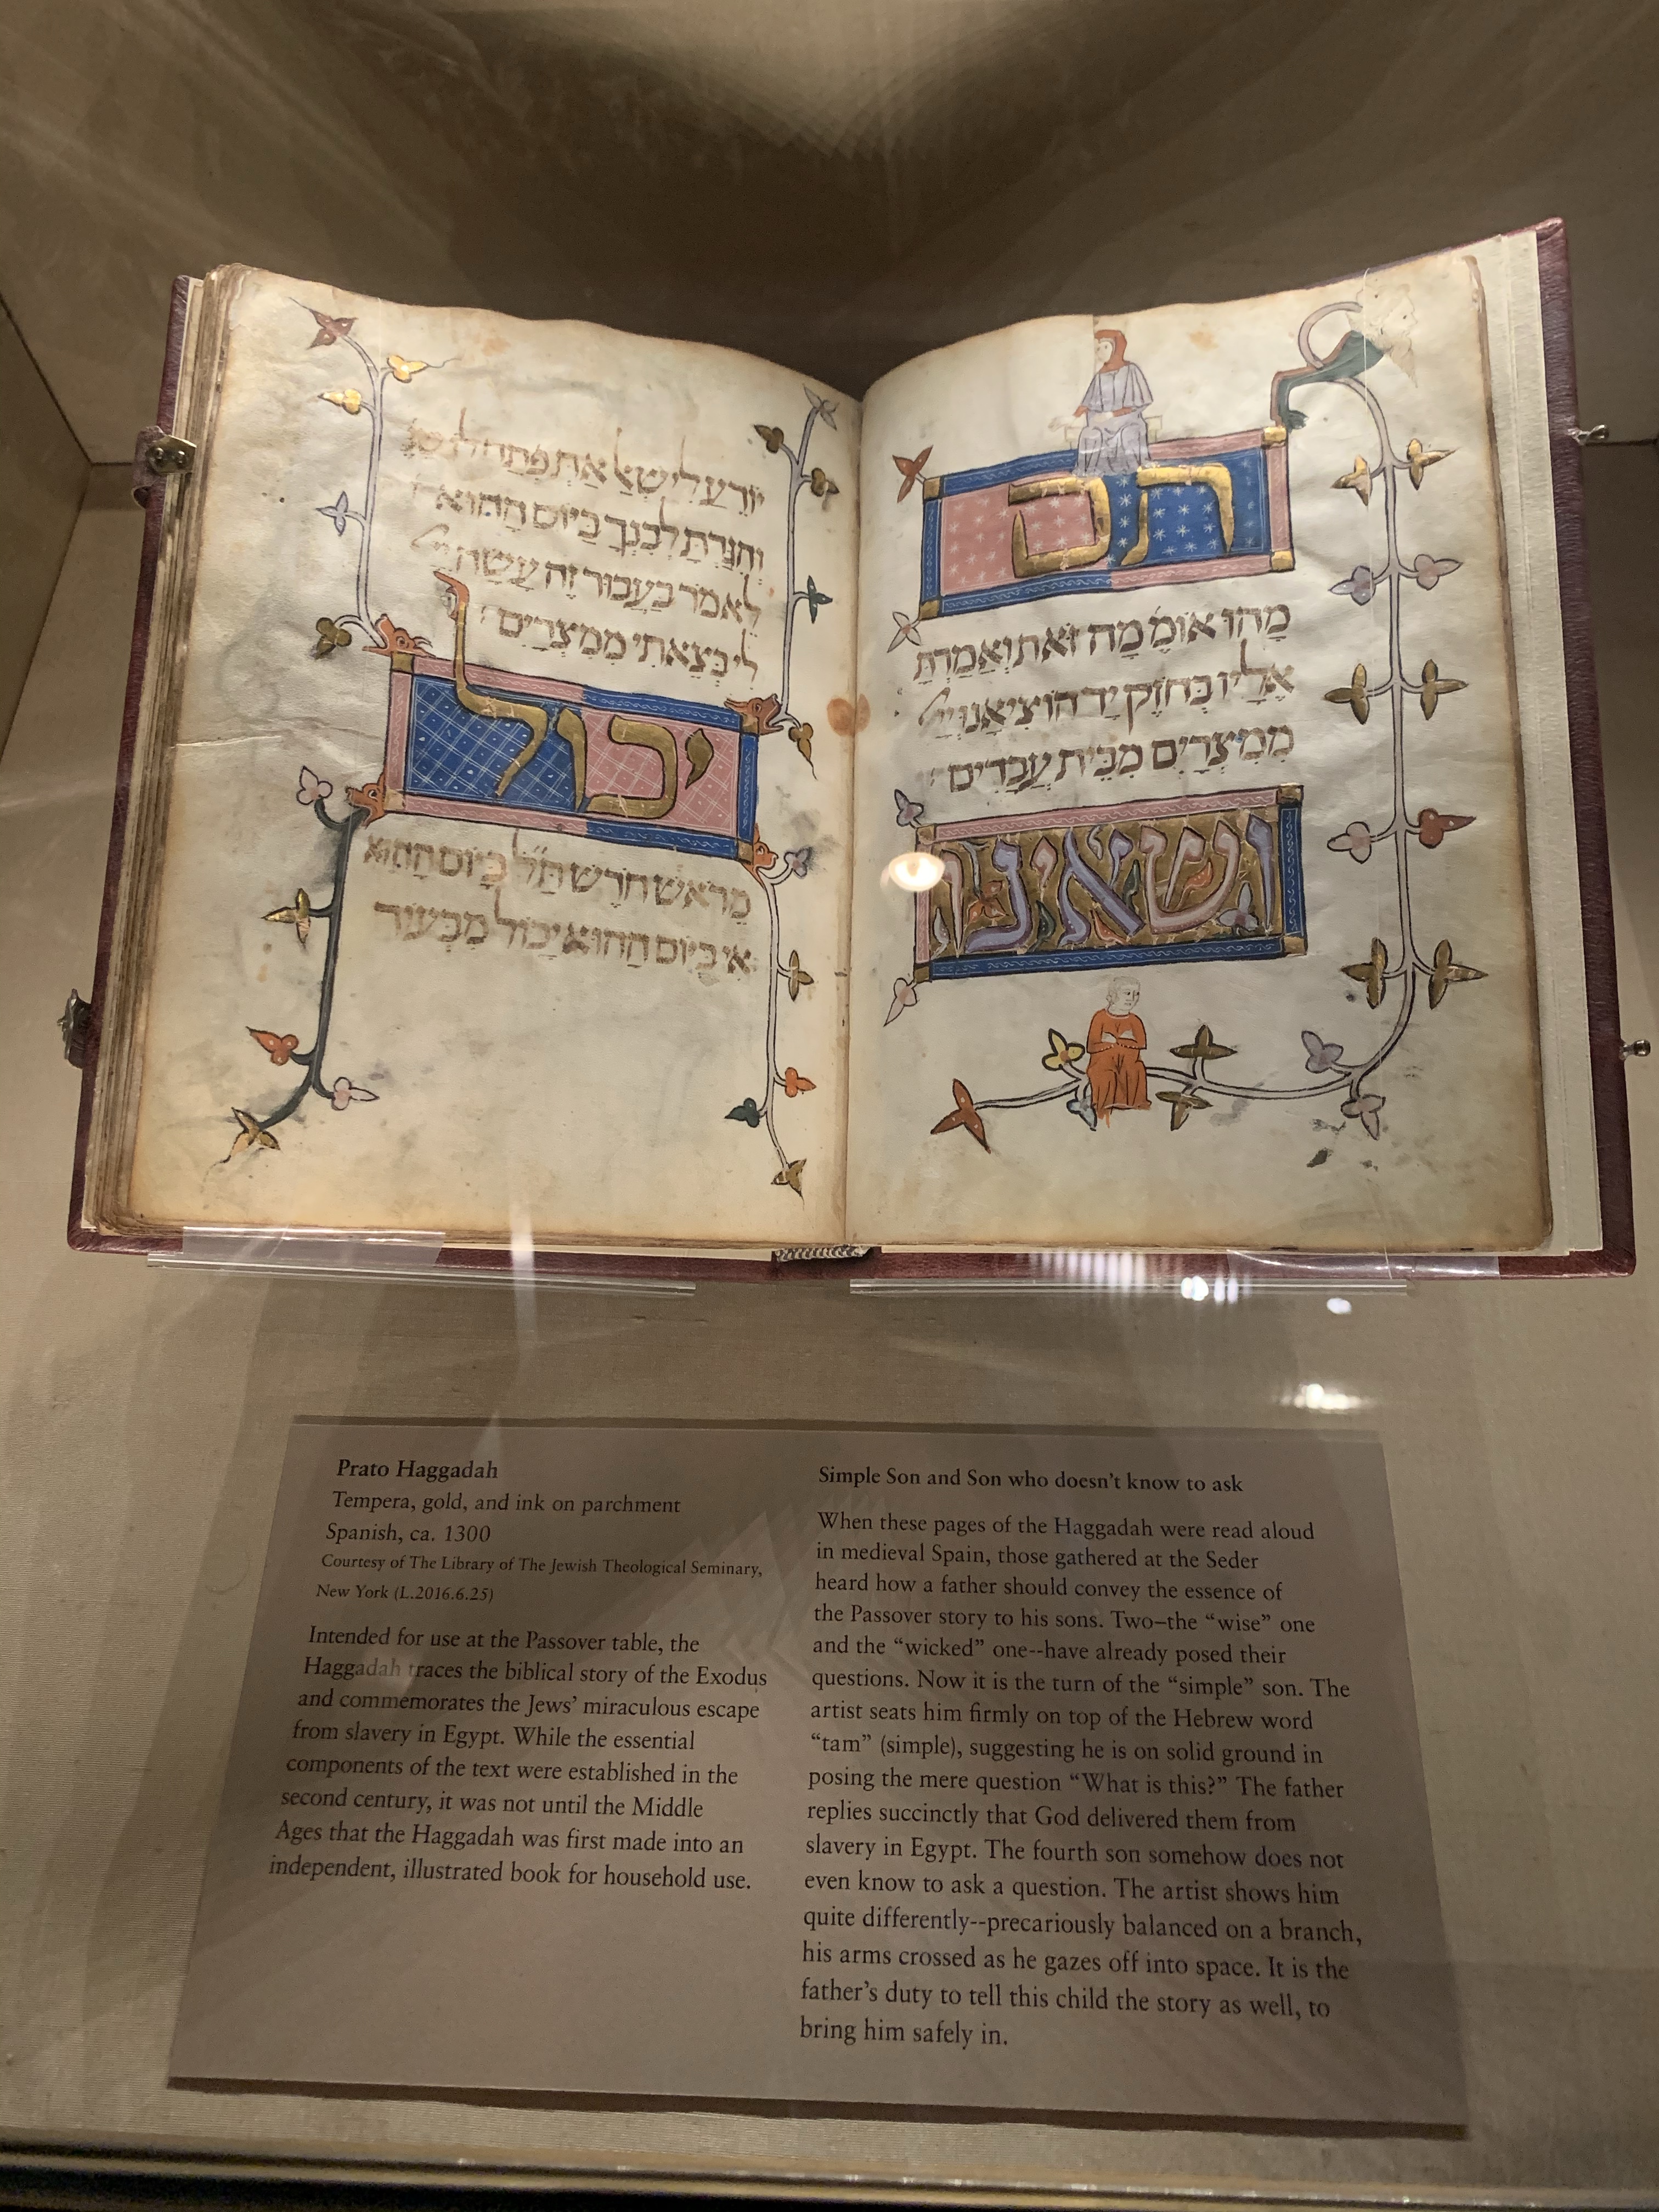 תם
מהו אומ מה זאת ואמרת
אליו בחוזק יד הוציאנו ייי
ממצרים מבית עבדים:
ושאינו
יודע לישאל את פתח לו שנ
והגדת לבנך ביום ההוא
לאמר בעבור זה עשה ייי
לי בצאתי ממצרים:
יכול
מראש חדש ת״ל ביום ההוא
אי ביום ההוא יכול מבעוד
Prato Haggadah
Tempera, gold, and ink on parchment
Spanish, ca. 1300
Courtesy of The Library of The Jewish Theological Seminary,
New York (L.2016.6.25)
Intended for use at the Passover table, the
Haggadah traces the biblical story of the Exodus
and commemorates the Jews' miraculous escape
from slavery in Egypt. While the essential
components of the text were established in the
second century, it was not until the Middle
Ages that the Haggadah was first made into an
independent, illustrated book for household use.
Simple Son and Son who doesn't know to ask
When these pages of the Haggadah were read aloud
in medieval Spain, those gathered at the Seder
heard how a father should convey the essence of
the Passover story to his sons. Two–the “wise” one
and the “wicked” one--have already posed their
questions. Now it is the turn of the “simple” son. The
artist seats him firmly on top of the Hebrew word
“tam” (simple), suggesting he is on solid ground in
posing the mere question “What is this?” The father
replies succinctly that God delivered them from
slavery in Egypt. The fourth son somehow does not
even know to ask a question. The artist shows him
quite differently--precariously balanced on a branch,
his arms crossed as he gazes off into space. It is the
father's duty to tell this child the story as well, to
bring him safely in.